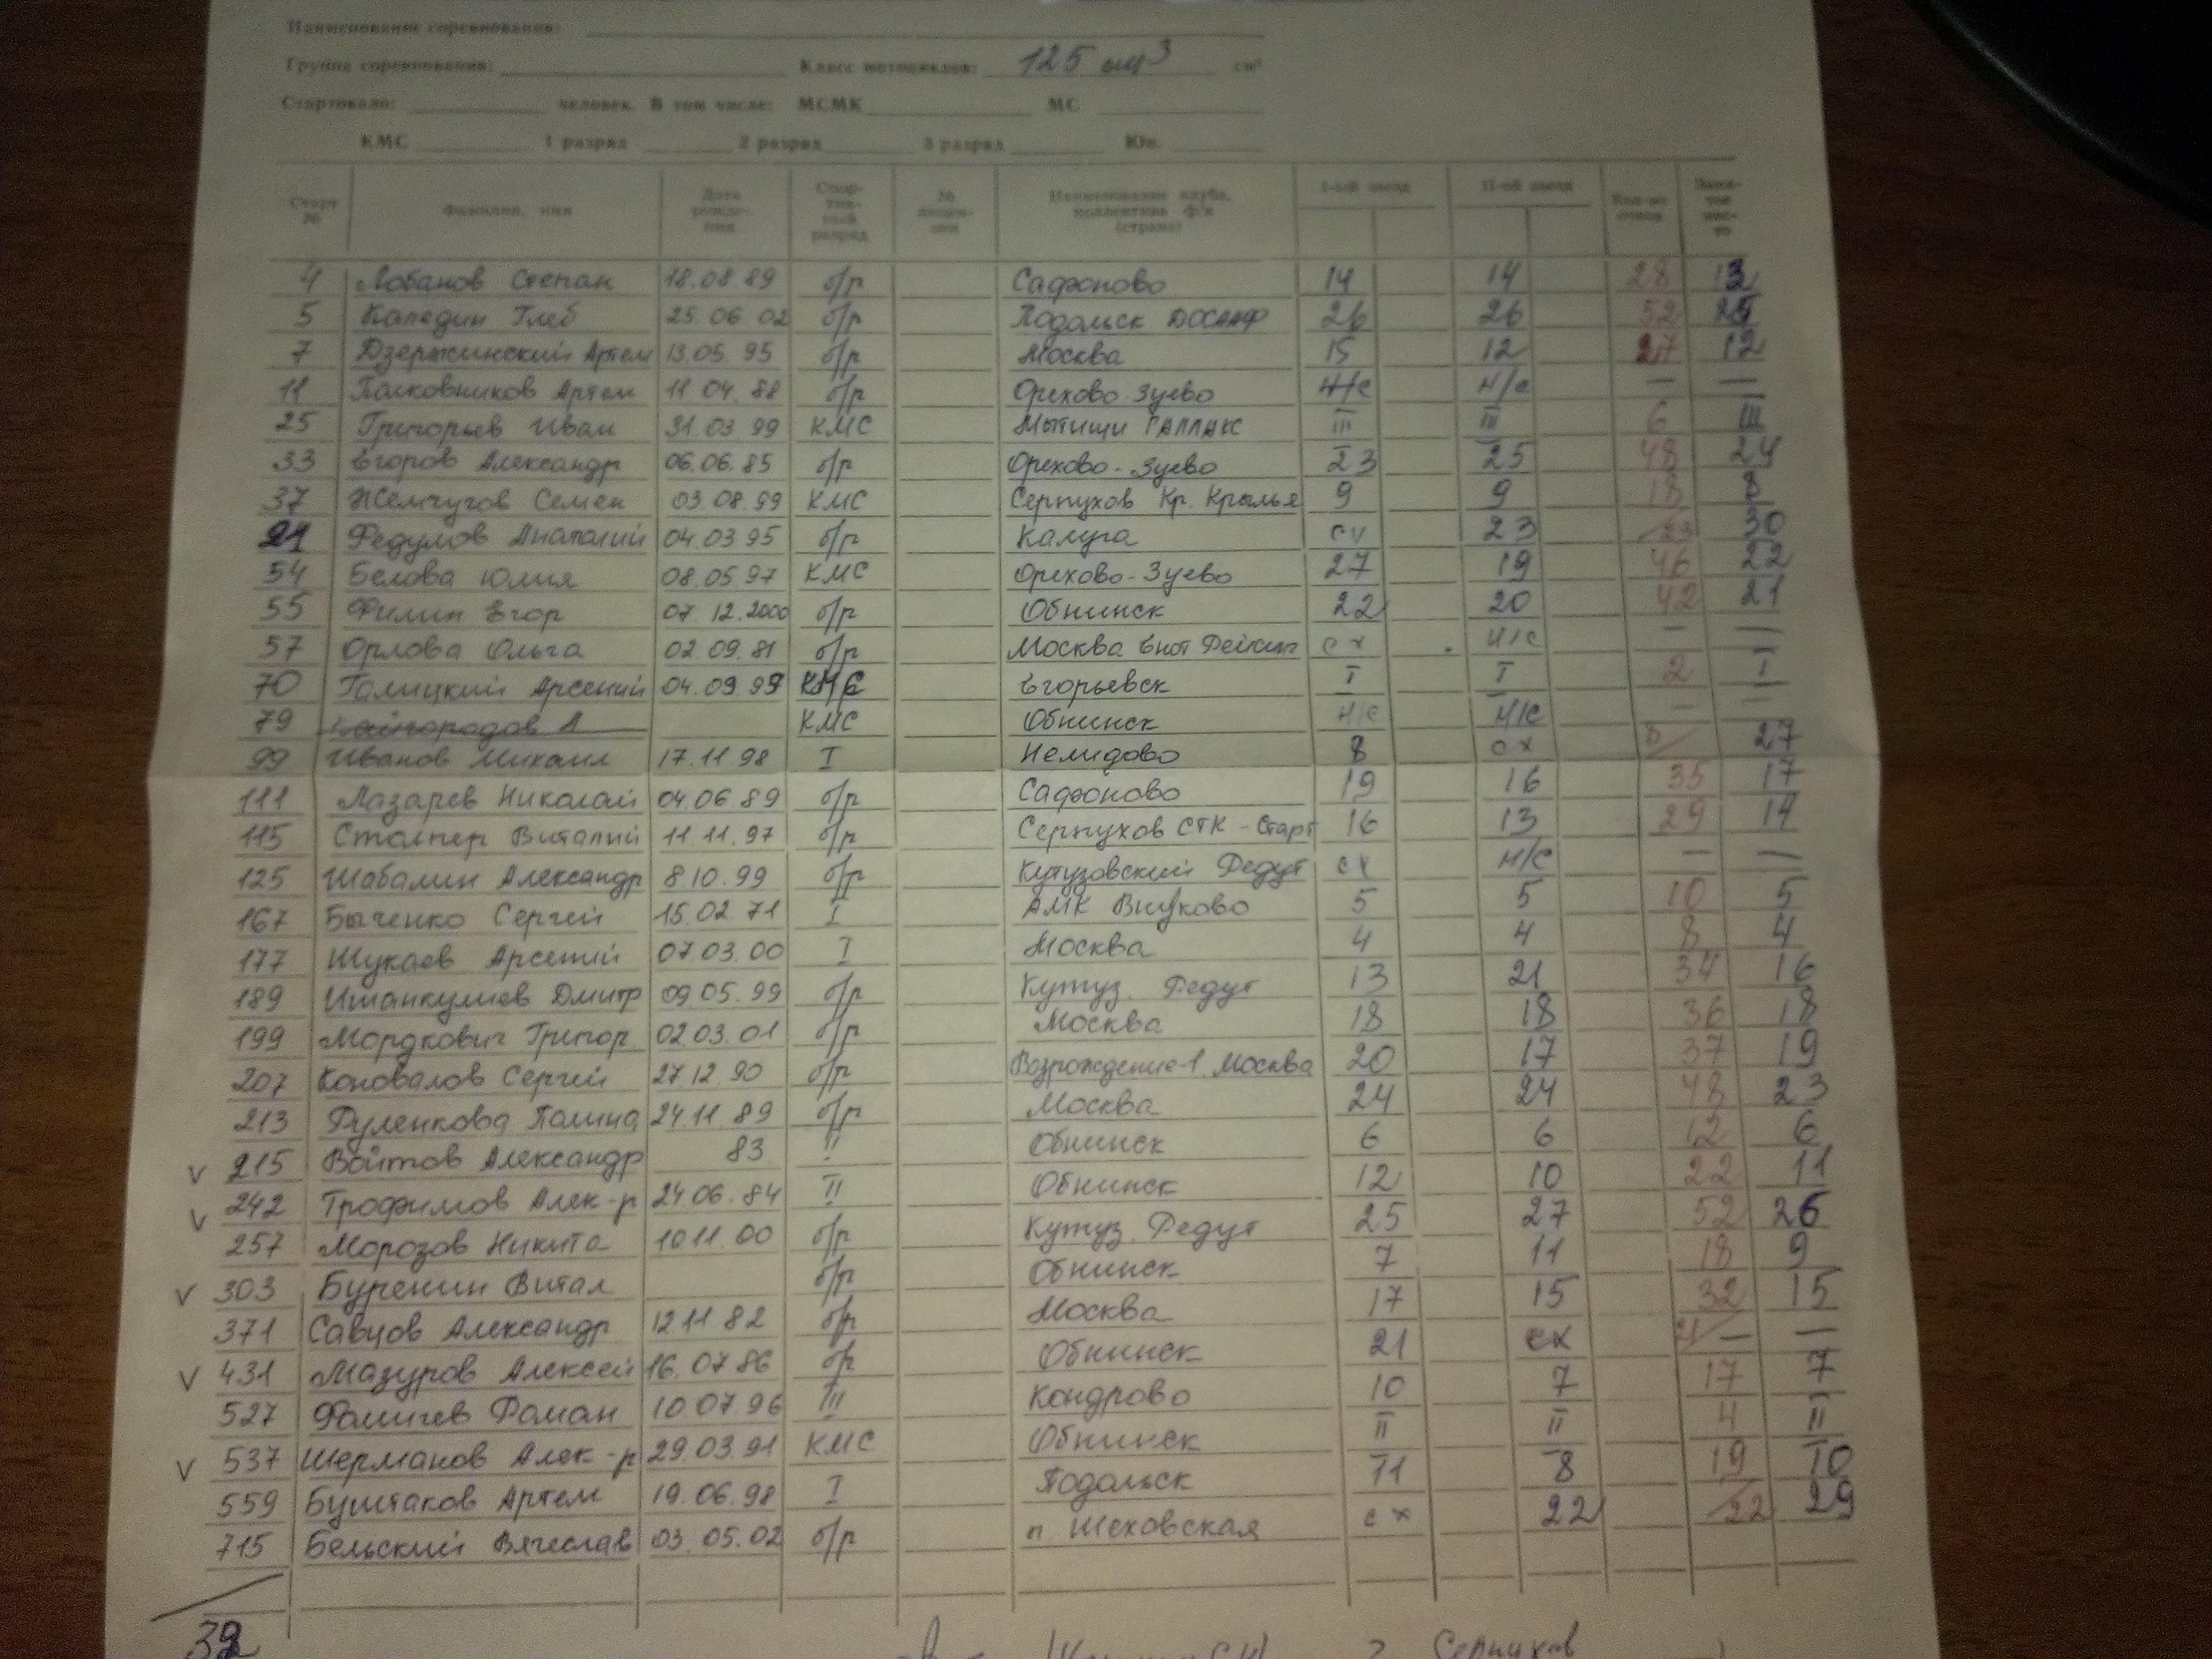 Наименование соревнования:
Группа соревнования: Класс мотоциклов: 125 см³ см³
Стартовало: человек. В том числе: МСМК МС
КМС 1 разряд 2 разряд 3 разряд Юн.
Старт № Фамилия, имя Дата рождения Спортивный разряд № лицензии Наименование клуба, коллектива ф/к (страна) I-ый заезд II-ой заезд Кол-во очков Занятое место
4 Лобанов Степан 18.08.89 б/р Сафоново 14 14 28 13
5 Каледин Глеб 25.06.02 б/р Подольск ДОСААФ 26 26 52 25
7 Дзержинский Артем 13.05.95 б/р Москва 15 12 27 12
11 Полковников Артем 11 04 88 б/р Орехово-Зуево н/с н/с — —
25 Григорьев Иван 31.03.99 КМС Мытищи ГАЛЛАКС III III 6 III
33 Егоров Александр 06.06.85 б/р Орехово-Зуево 23 25 48 24
37 Жемчугов Семен 03 08.99 КМС Серпухов Кр. Крылья 9 9 18 8
21 Федулов Анатолий 04.03 95 б/р Калуга сх 23 23 30
54 Белова Юлия 08.05.97 КМС Орехово-Зуево 27 19 46 22
55 Филин Егор 07.12.2000 б/р Обнинск 22 20 42 21
57 Орлова Ольга 02 09.81 б/р Москва сх н/с — —
70 Галицкий Арсений 04.09.99 КМС Егорьевск I I 2 I
79 А КМС Обнинск н/с н/с — —
99 Иванов Михаил 17.11.98 I Нелидово 8 сх 8 27
111 Лазарев Николай 04.06.89 б/р Сафоново 19 16 35 17
115 Столпер Виталий 11.11.97 б/р Серпухов СТК-Старт 16 13 29 14
125 Шабалин Александр 8.10.99 б/р Кутузовский Редут сх н/с — —
167 Быченко Сергей 15.02.71 I АМК Внуково 5 5 10 5
177 Шукаев Арсений 07 03.00 I Москва 4 4 8 4
189 Ишанкулиев Дмитр 09 05.99 б/р Кутуз. Редут 13 21 34 16
199 Мордкович Григор 02 03.01 б/р Москва 18 18 36 18
207 Коновалов Сергей 27 12.90 б/р Возрождение-1. Москва 20 17 37 19
213 Руленкова Полина 24.11.89 б/р Москва 24 24 48 23
v 215 Войтов Александр 83 II Обнинск 6 6 12 6
v 242 Трофимов Алек-р 24 06.84 II Обнинск 12 10 22 11
257 Морозов Никита 10 11.00 б/р Кутуз. Редут 25 27 52 26
v 303 Буренин Витал б/р Обнинск 7 11 18 9
371 Савцов Александр 12 11 82 б/р Москва 17 15 32 15
v 431 Мазуров Алексей 16.07.86 б/р Обнинск 21 сх 21 — —
527 Фомичев Роман 10.07.96 III Кондрово 10 7 17 7
v 537 Шерманов Алек-р 29.03.91 КМС Обнинск II II 4 II
559 Буштаков Артем 19.06.98 I Подольск 11 8 19 10
715 Бельский Вячеслав 03.05.02 б/р п. Шеховская сх 22 22 29
32
Серпухов